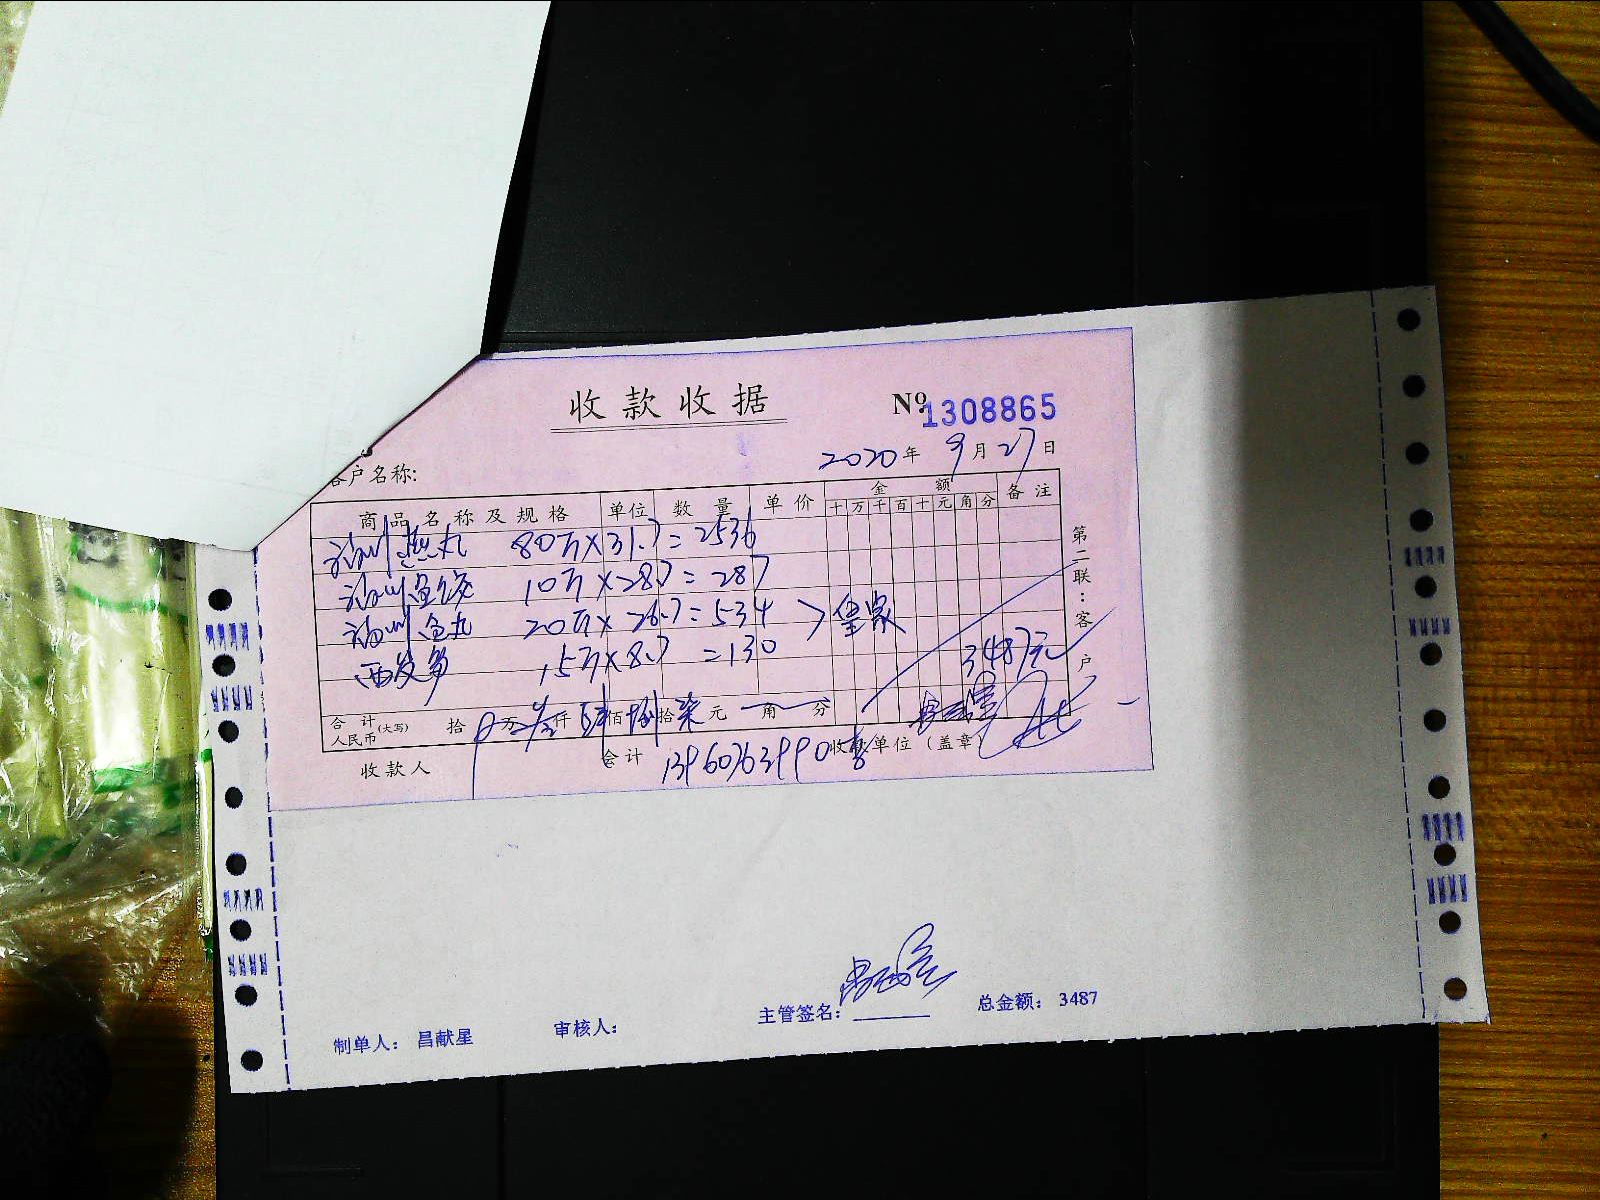 收款收据
№ 1308865
2020年9月27日
客户名称:
商品名称及规格 单位 数量 单价 金额 备注
十 万 千 百 十 元 角 分
福州燕丸 80斤×31.7=2536
福州鱼饺 10斤×28.7=287
福州鱼丸 20斤×26.7=534
15斤×8.7=130
3487元
合计人民币(大写) 拾 万叁仟肆佰捌拾柒元 角 分
收款人 会计 13960763990 收款单位(盖章)
第二联:客户
制单人: 昌献星 审核人: 主管签名: 总金额: 3487